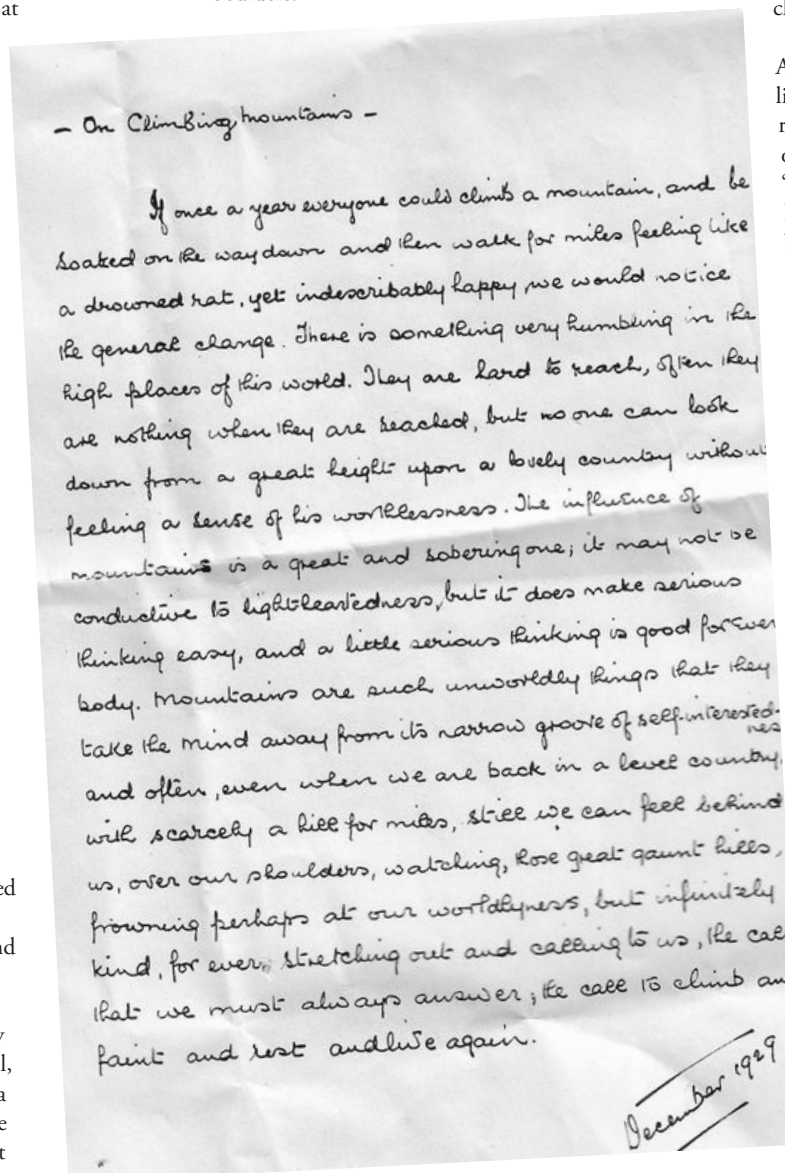 at
— On Climbing Mountains —
If once a year everyone could climb a mountain, and be
soaked on the way down and then walk for miles feeling like
a drowned rat, yet indescribably happy, we would notice
the general change. There is something very humbling in the
high places of this world. They are hard to reach, often they
are nothing when they are reached, but no one can look
down from a great height upon a lovely country without
feeling a sense of his worthlessness. The influence of
mountains is a great and sobering one; it may not be
conductive to lightheartedness, but it does make serious
thinking easy, and a little serious thinking is good for ever
body. Mountains are such unworldly things that they
take the mind away from its narrow groove of self-interested-
nes
and often, even when we are back in a level country,
with scarcely a hill for miles, still we can feel behind
us, over our shoulders, watching, those great gaunt hills,
frowning perhaps at our worldlyness, but infinitely
kind, for ever, stretching out and calling to us, the call
that we must always answer; the call to climb an
faint and rest and live again.
December 1929